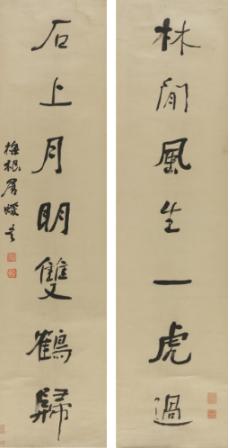 林間風生一虎過
石上月明雙鶴歸
梅根居